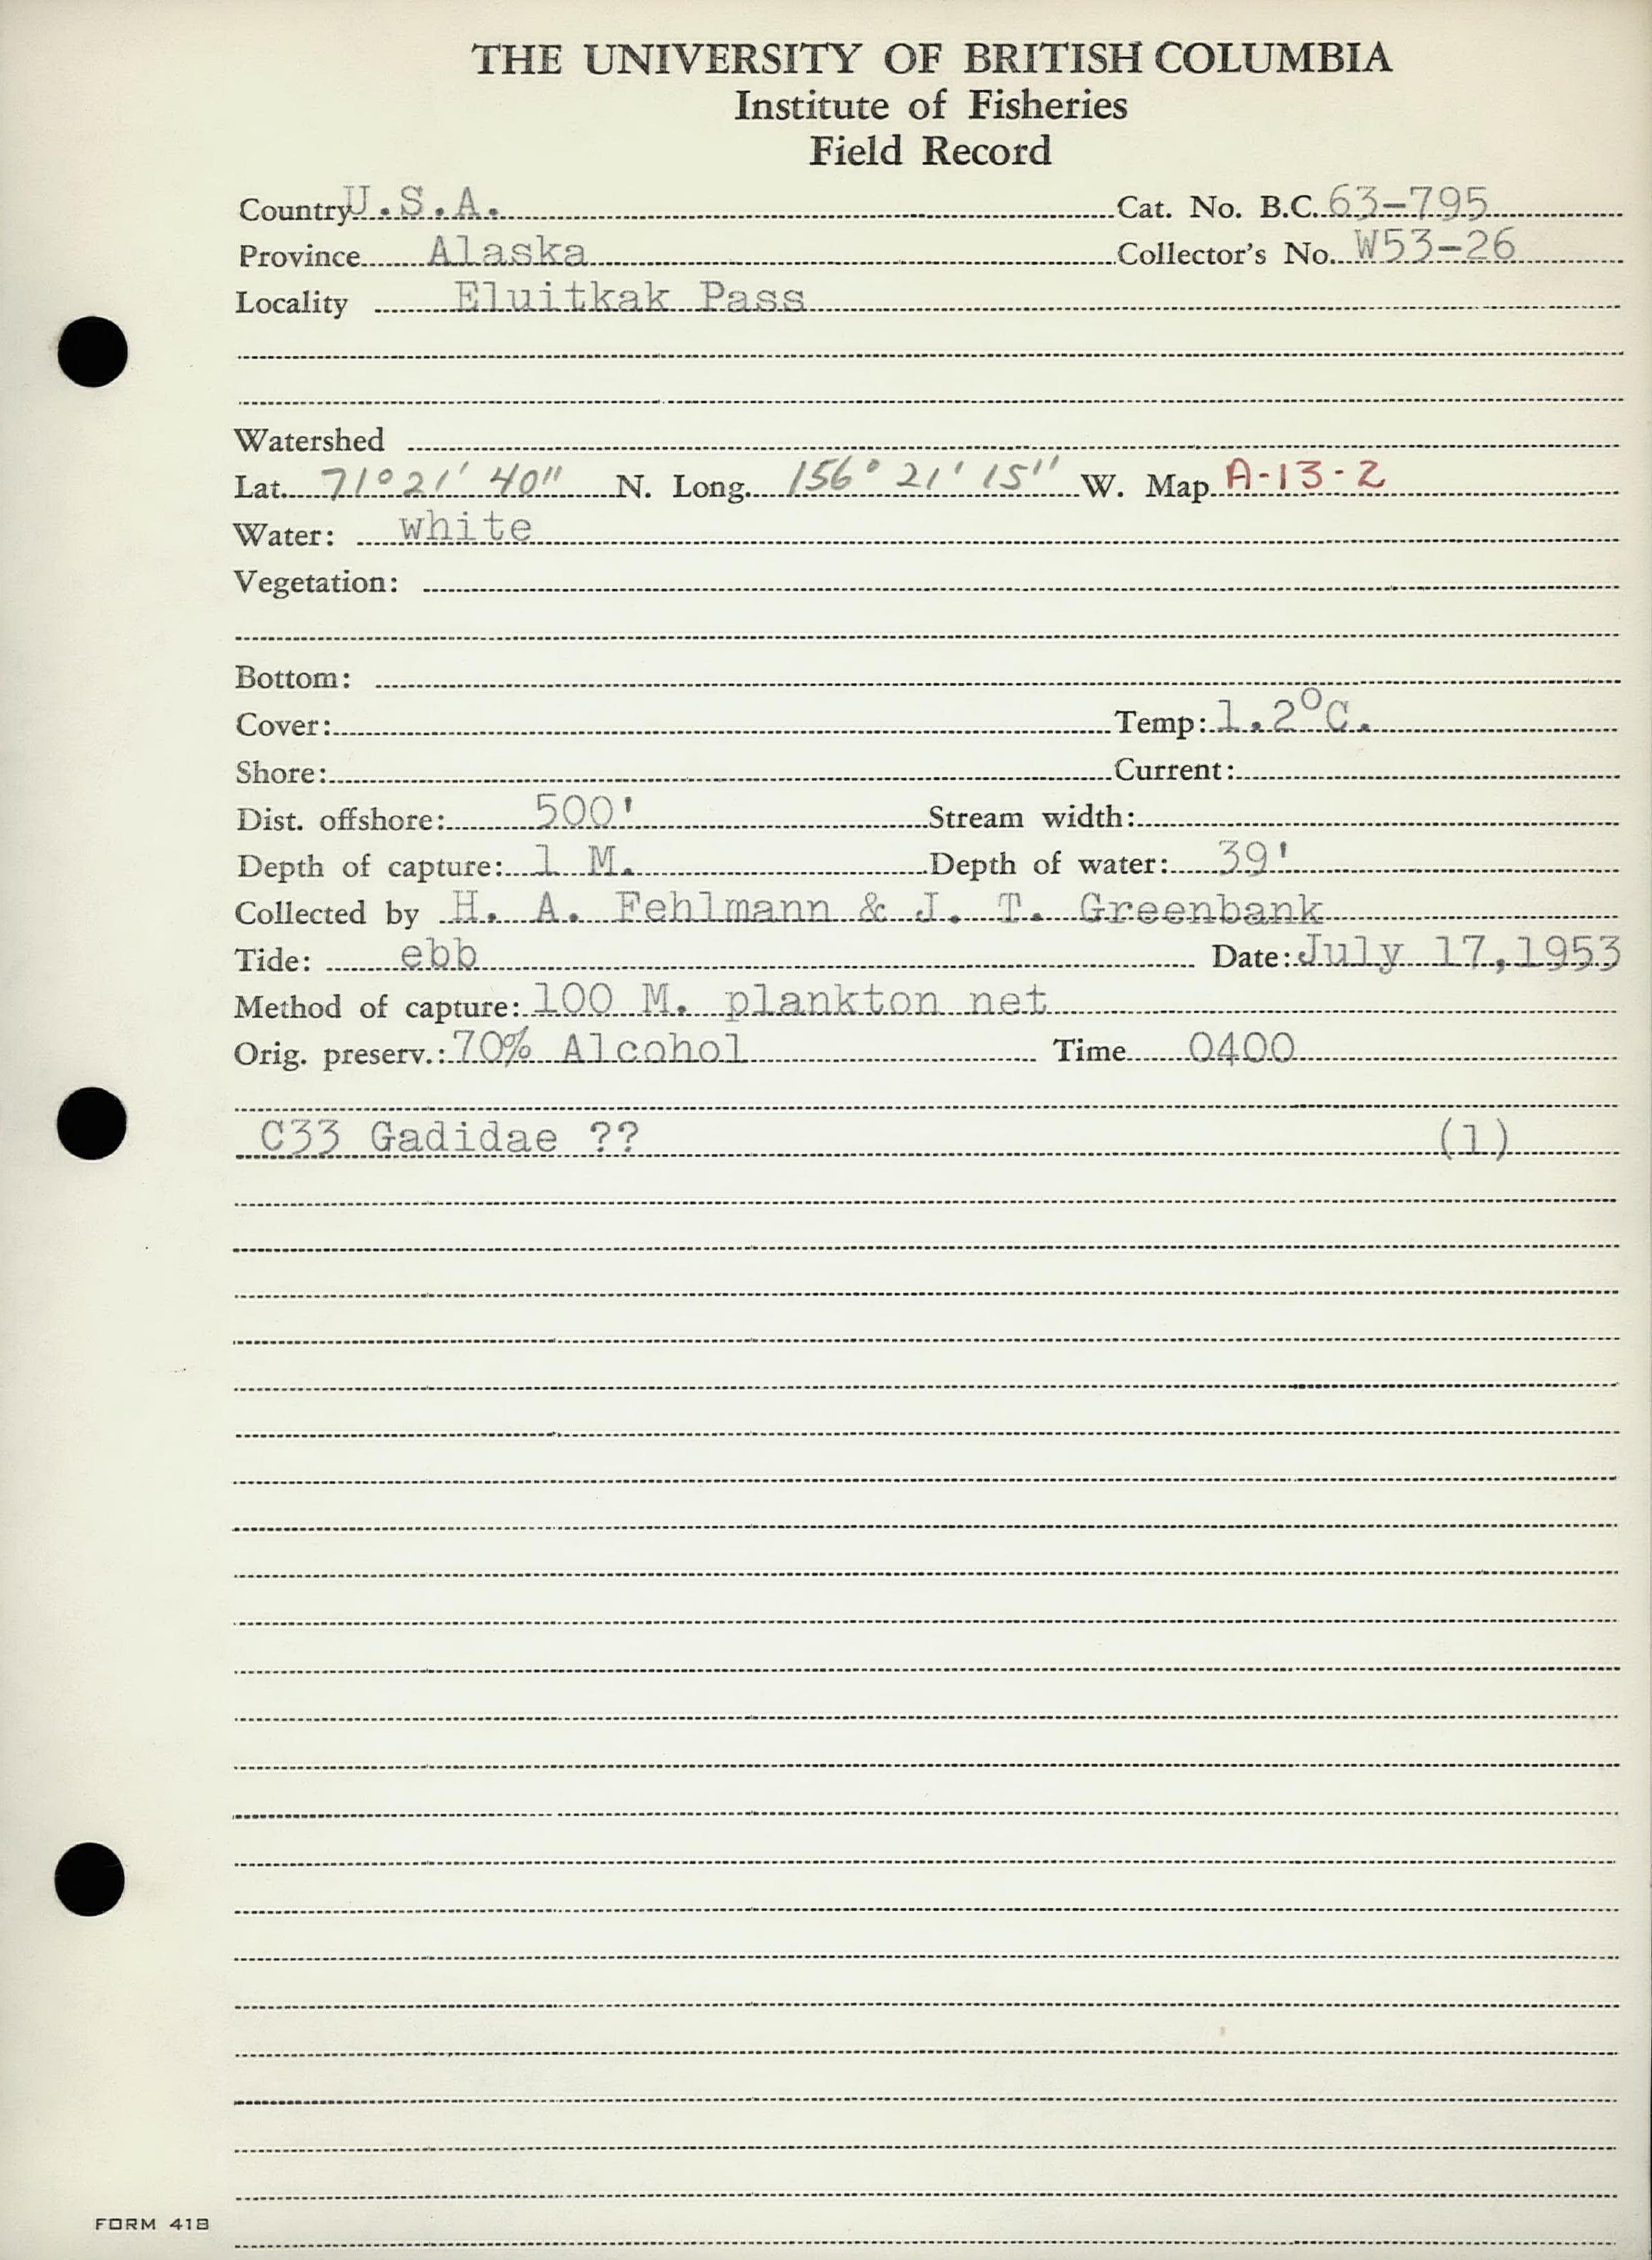 THE UNIVERSITY OF BRITISH COLUMBIA
Institute of Fisheries
Field Record
Country U.S.A. Cat. No. B.C. 63-795
Province Alaska Collector's No. W53-26
Locality Eluitkak Pass
Watershed
Lat. 71° 21' 40" N. Long. 156° 21' 15" W. Map A-13-2
Water: white
Vegetation:
Bottom:
Cover: Temp: 1.2°C.
Shore: Current:
Dist. offshore: 500' Stream width:
Depth of capture: 1 M. Depth of water: 39'
Collected by H. A. Fehlmann & J. T. Greenbank
Tide: ebb Date: July 17,1953
Method of capture: 100 M. plankton net
Orig. preserv.: 70% Alcohol Time 0400
C33 Gadidae ?? (1)
FORM 41B